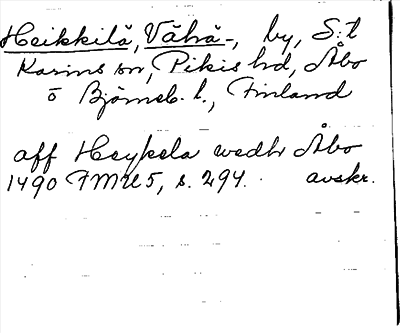 Heikkilä, Vähä-, by, S:t
Karins sn, Pikis hd, Åbo
o Björneb. l., Finland
aff Heykela wedhr Åbo
1490 FMU 5, s. 294. avskr.